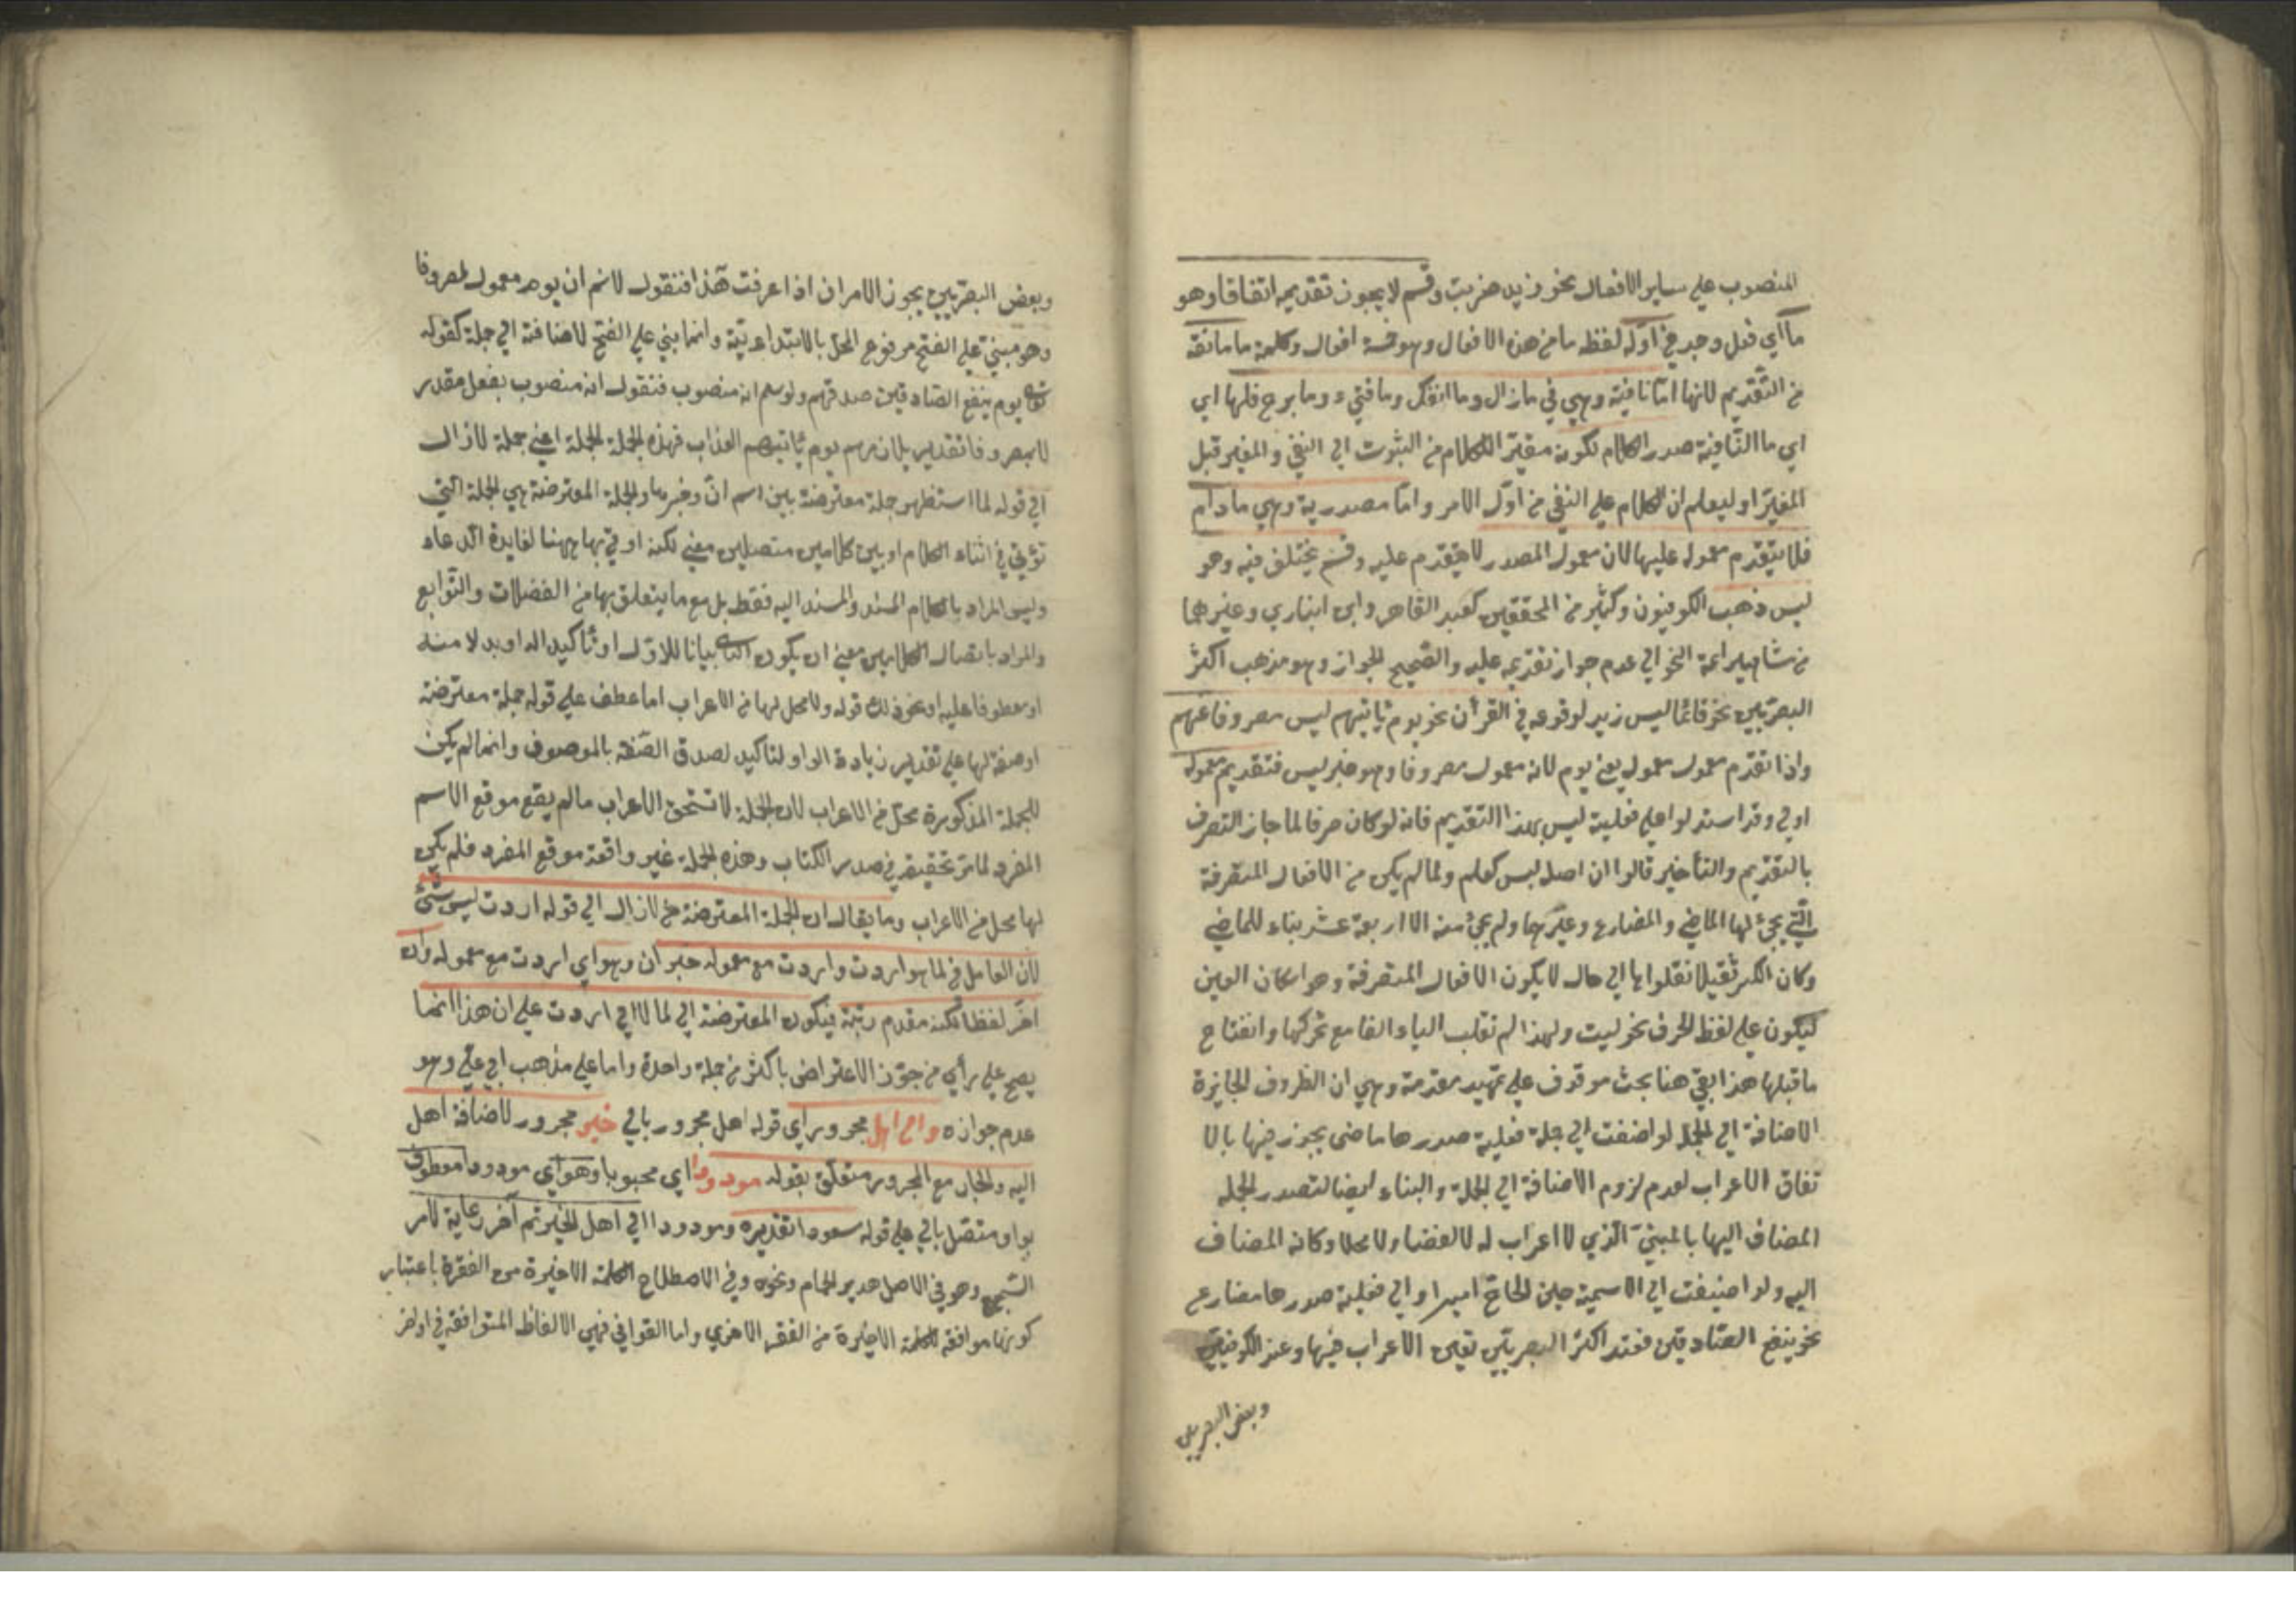 المنصوب علي ساير الافعال نحو زيد ضربت وقسم لا يجوز تقديمه اتفاقا وهو
ما اي فعل وجد في اوله لفظ ما من هذه الافعال وهو خمسة افعال وكلمة ما مانعة
من التقديم لانها اما نافية وهي في مازال وما انفك وما فتيء وما برح فلها اي
اي ما النافية صدر الكلام لكونه مغيّر الكلام من الثبوت الي النفي والمغير قبل
المغيّر او ليعلم ان الكلام علي النفي من اوّل الامر وامّا مصدرية وهي مادام
فلا يتقدم معموله عليها لان معمول المصدر لا يتقدم عليه وقسم يختلف فيه وهو
ليس ذهب الكوفيون وكثير من المحققين كعبد القاهر وابن انباري وغيرهما
من مشاهير ائمة النحو الي عدم جواز تقديمه عليه والصحيح الجواز وهو مذهب اكثر
البصريين نحو قائما ليس زيد لوقوعه في القرأن نحو يوم ياتيهم ليس مصروفا عنهم
واذا تقدم معمول معموله يعني يوم لانه معمول مصروفا وهو خبر ليس فتقديم معموله
اولي وقد استدلوا علي فعلية ليس بهذا التقديم فانه لو كان حرفا لما جاز التصرف
بالتقديم والتأخير قالوا ان اصل ليس كعلم ولما لم يكن من الافعال المتصرفة
الّتي يجئ لها الماضي والمضارع وغيرها ولم يجئ منه الا اربعة عشر بناء للماضي
وكان الكسر ثقيلا نقلوها الي حال لا يكون الافعال المتصرفة وهو اسكان العين
ليكون علي لفظ الحرف نحو ليت ولهذا لم تقلب الياء الفا مع تحركها وانفتاح
ما قبلها هذا بقي هنا بحث موقوف علي تمهيد مقدمة وهي ان الظروف الجايزة
الاضافة الي الجمل لو اضفت الي جملة فعلية صدرها ماضي يجوز فيها بالا
تفاق الاعراب لعدم لزوم الاضافة الي الجملة والبناء ايضا لتصدر الجملة
المضاف اليها بالمبنيّ الّذي لا اعراب له لا لفظا ولا محلا وكانه المضاف
اليه ولو اضيفت الي الاسمية حين الحاج امير او الي فعلية صدرها مضارع
نحو ينفع الصّادقين فعند اكثر البصريّين تعين الاعراب فيها وعند الكوفيين
وبعض البصريين
وبعض البصريّين يجوز الامران اذا عرفت هذا فنقول لا نم ان يوم معمول لمصروفا
وهو مبنيّ علي الفتح مرفوع المحل بالابتداءيّة وانما بني علي الفتح لاضافته الي جملة كقوله
تعالي يوم ينفع الصّادقين صدقهم ولو سلم انه منصوب فنقول انه منصوب بفعل مقدر
لا بمصروفا تقديره يلازمهم يوم ياتيهم العذاب فهذه الجملة الجملة اعني جملة لازال
الي قوله لما استظهر جملة معترضة بين اسم انّ وخبرها والجملة المعترضة هي الجملة الّتي
تؤتي في اثناء الكلام او بين كلامين متصلين معني لنكتة اوتي بها ههنا لفايدة الدعاء
وليس المراد بالكلام المسند والمسند اليه فقط بل مع ما يتعلق بها من الفضلات والتّوابع
والمراد باتصال الكلامين معني ان يكون الثاني بيانا للاوّل او تأكيدا له او بدلا منه
او معطوفا عليه او نحو ذلك قوله ولا محل لها من الاعراب اما عطف علي قوله جملة معترضة
او صفة لها علي تقدير زيادة الواو لتاكيد لصدق الصّفة بالموصوف وانما لم يكن
للجملة المذكورة محل من الاعراب لان الجملة لا تستحق الاعراب ما لم يقع موقع الاسم
المفرد لما مر تحقيقه في صدر الكتاب وهذه الجملة غير واقعة موقع المفرد فلم يكن
لها محل من الاعراب وما يقال ان الجملة المعترضة من لازال الي قوله اردت ليس بشئ
لان العامل في لما هو اردت واردت مع معموله خبر ان وهو اي اردت مع معموله وان
اخّر لفظا لكنه مقدم رتبة فيكون المعترضة الي لما لا الي اردت علي ان هذا انما
يصح علي رأي من جوّز الاعتراض باكثر من جملة واحدة واما علي مذهب ابي عليّ وهو
عدم جوازه والي اهل مجرور اي قوله اهل مجرور بالي خير مجرور لاضافة اهل
اليه والجار مع المجرور متعلق بقوله مودودا اي محبوبا وهو اي مودودا معطوف
بواو متصل بالي علي قوله مسعودا تقديره ومودودا الي اهل الخير ثم آخر رعاية لامر
السّجع وهو في الاصل هدير الحمام ونحوه وفي الاصطلاح الكلمة الاخيرة من الفقرة باعتبار
كونها موافقة للكلمة الاخيرة من الفقرة الاخري واما القوافي فهي الالفاظ المتوافقة في اواخر